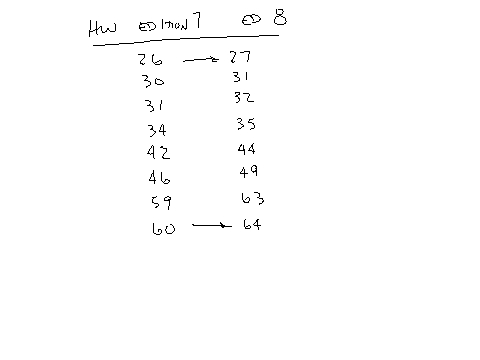 HW EDITION 7 ED 8
26 → 27
30 31
31 32
34 35
42 44
46 49
59 63
60 → 64